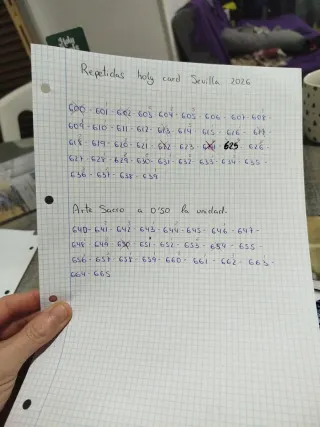 Repetidas holy card Sevilla 2026
600 - 601 - 602 - 603 - 604 - 605 - 606 - 607 - 608 -
609 - 610 - 611 - 612 - 613 - 614 615 - 616 - 617 -
618 - 619 - 620 - 621 - 622 - 623 625 - 626 -
627 - 628 - 629 - 630 - 631 - 632 - 633 - 634 - 635 -
636 - 637 - 638 - 639
Arte Sacro a 0'50 la unidad.
640 - 641 - 642 - 643 - 644 - 645 - 646 - 647 -
648 - 649 - 650 - 651 - 652 - 653 - 654 - 655 -
656 - 657 - 658 - 659 - 660 - 661 - 662 - 663 -
664 - 665